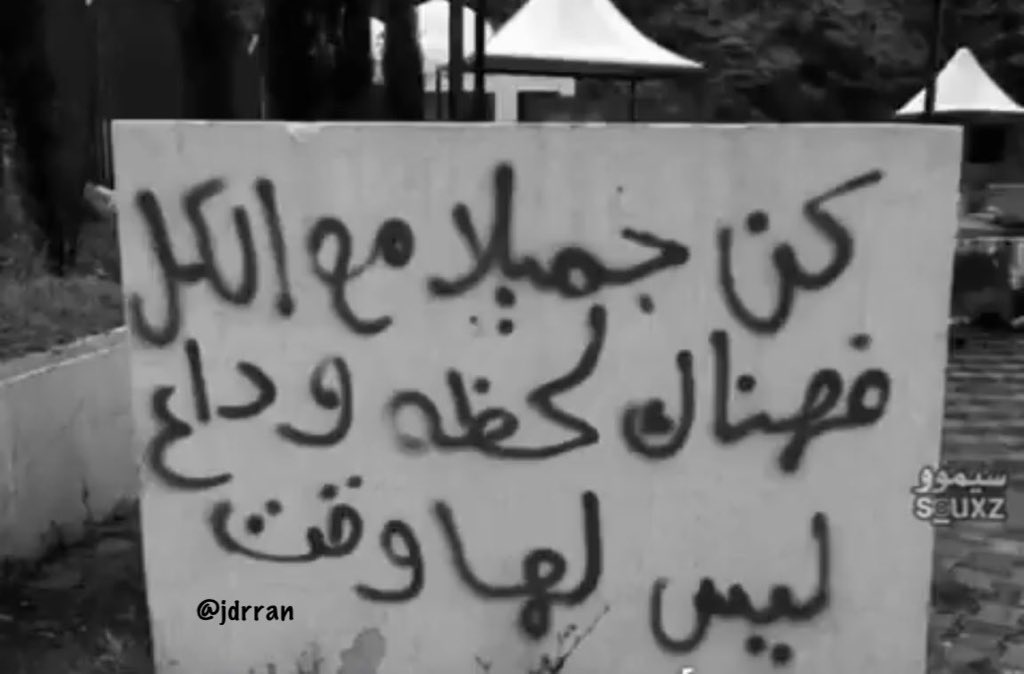 كن جميلا مع الكل
فهناك لحظه وداع
ليس لها وقت
سيموو
SOUXZ
@jdrran